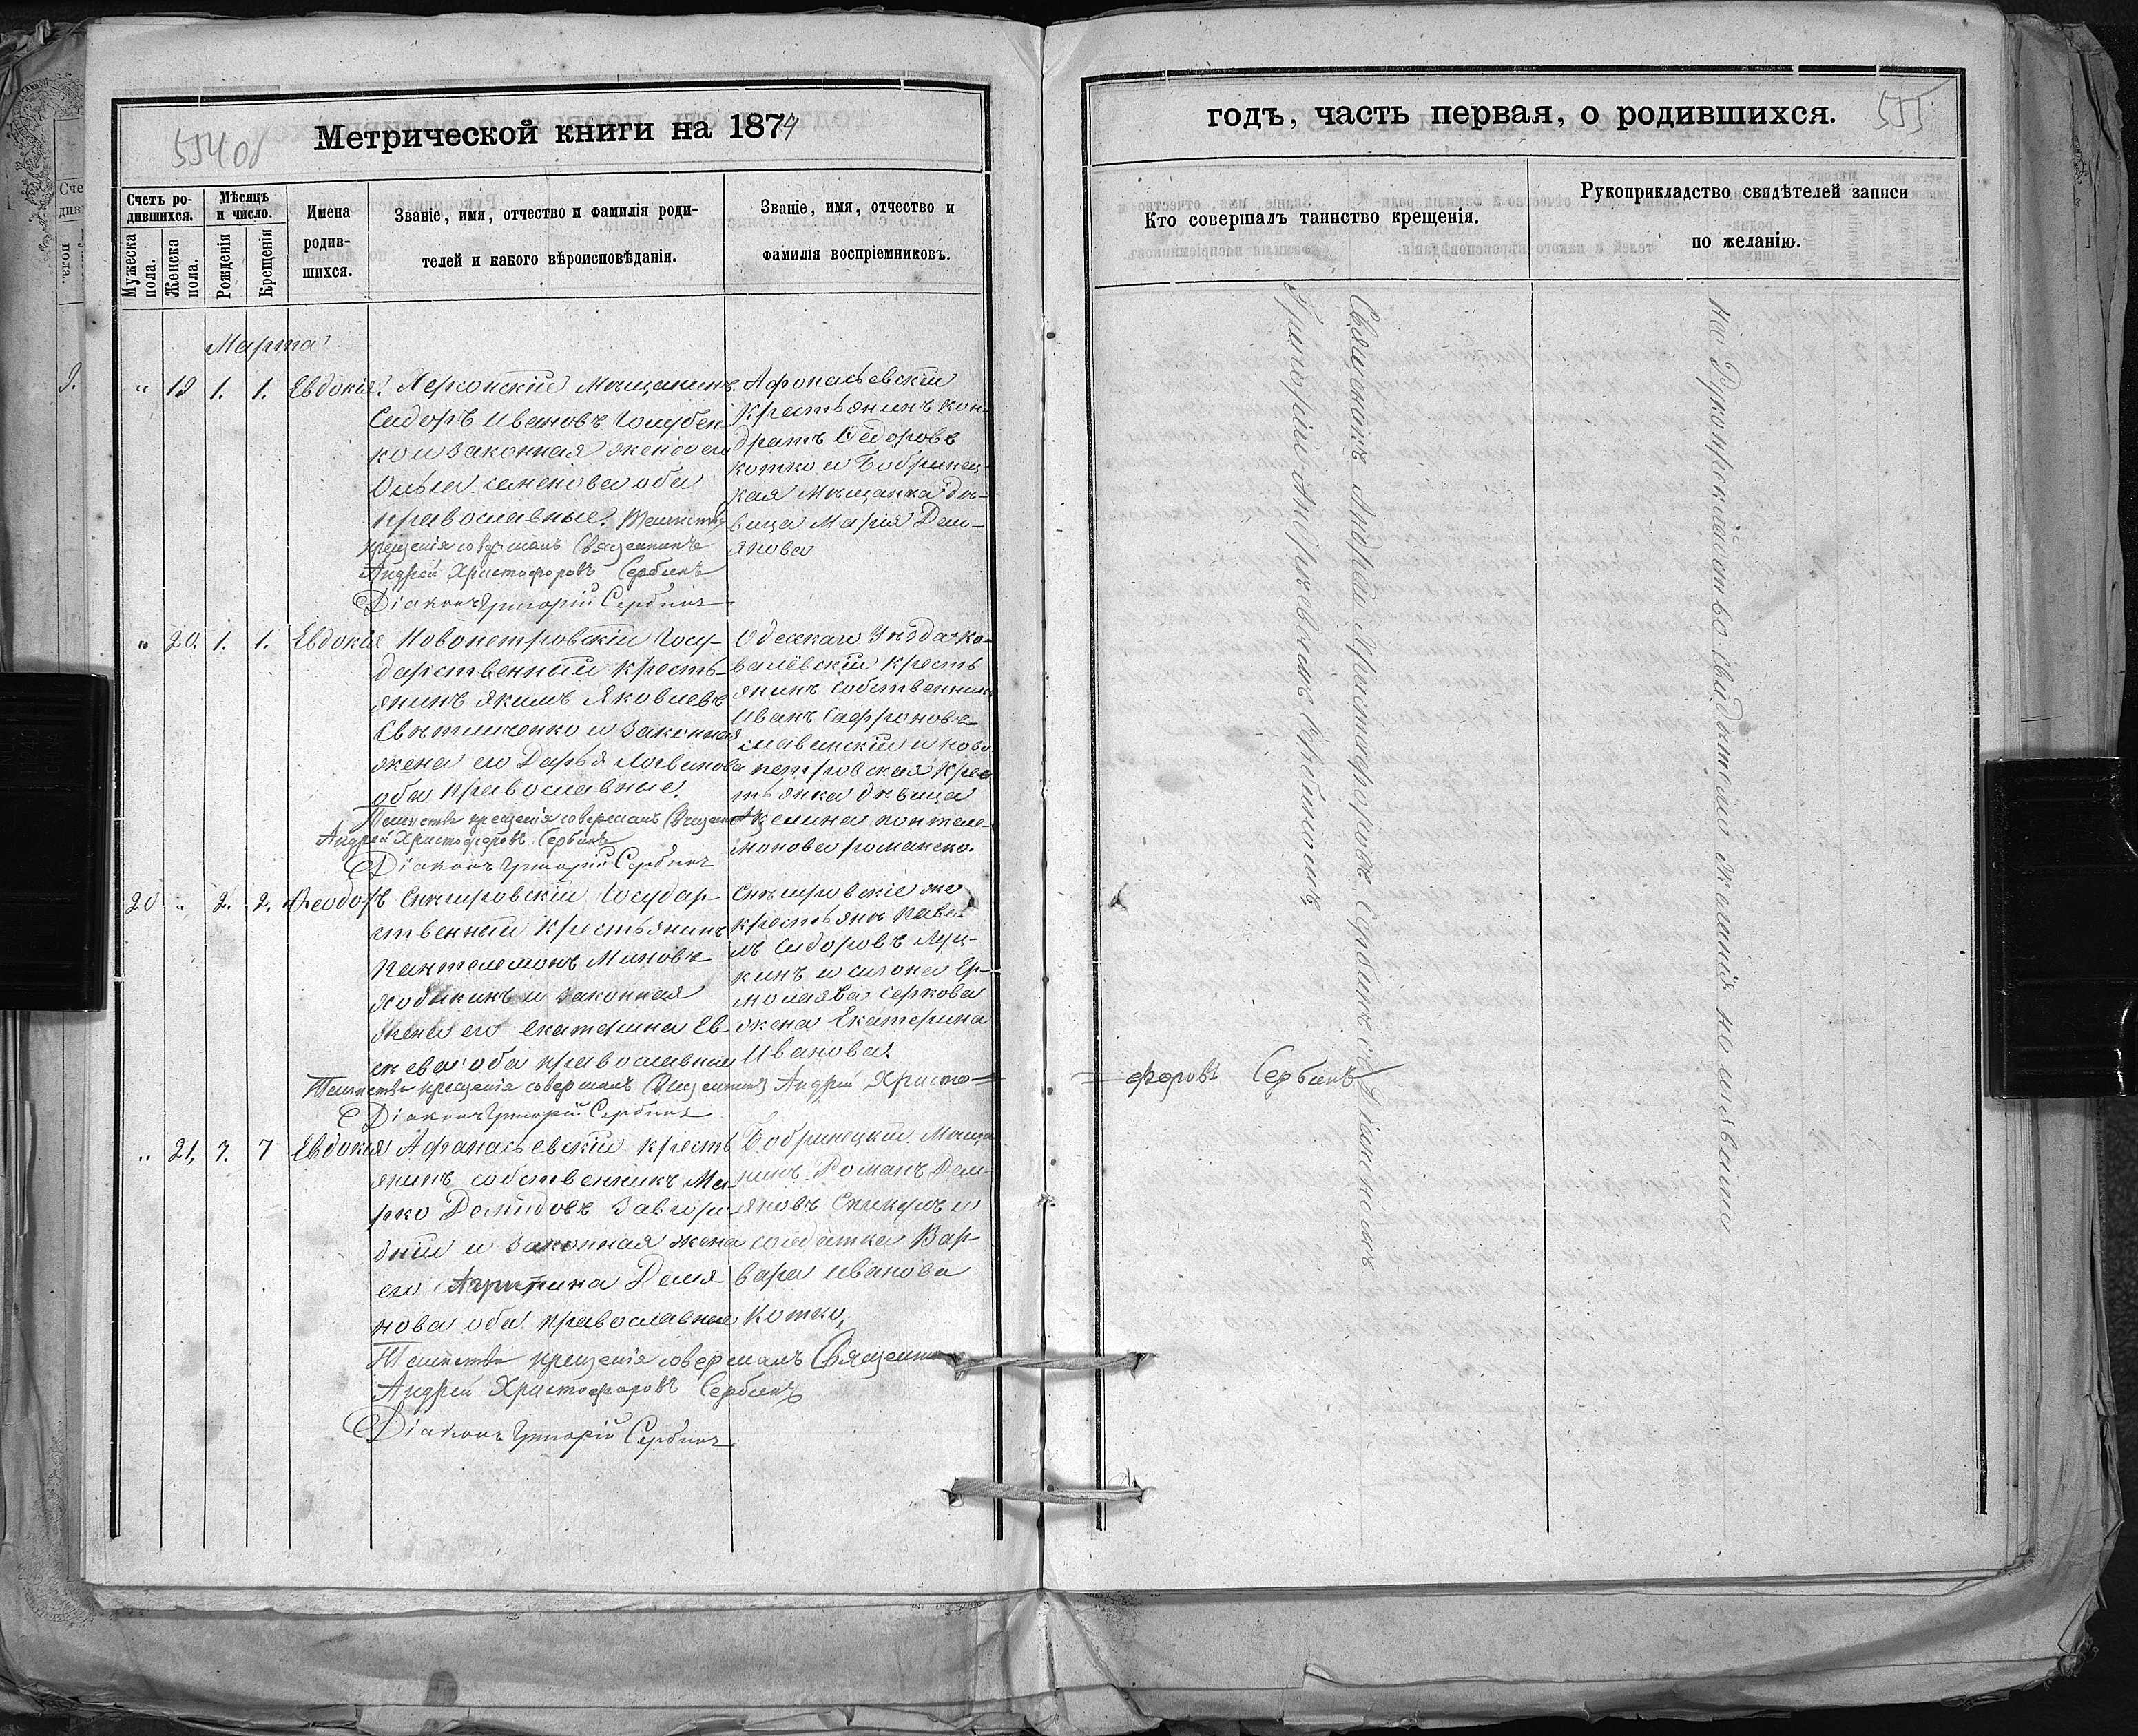 554 об
Метрической книги на 1874
Счетъ ро-
дившихся.
Мѣсяцъ
и число.
Мужеска
пола.
Женска
пола.
Рожденія
Крещенія
Имена
родив-
шихся.
Званіе, имя, отчество и фамилія роди-
телей и какого вѣроисповѣданія.
Званіе, имя, отчество и
фамилія воспріемниковъ.
Марта
" 19 1. 1. Евдокія.
Херсонскій Мѣщанинъ
Сидоръ Ивановъ Голубен
ко и законная жена его
Ольга Семенова оба
православные. Таинство
крещенія совершалъ Священникъ
Андрей Христофоровъ Сербинъ
Діаконъ Григорій Сербинъ
Афонасьевскій
крестьянинъ Кон-
дратъ Ѳедоровъ
Котко и Бобринец-
кая Мѣщанка дѣ-
вица Марія Демь-
янова
" 20. 1. 1. Евдокія
Новопетровскій Госу-
дарственный кресть-
янинъ Якимъ Яковлевъ
Свѣтличенко и законная
жена его Дарья Логвинова
оба православные.
Таинство крещенія совершалъ Священникъ
Андрей Христофоровъ Сербинъ
Діаконъ Григорій Сербинъ
Одесскаго Уѣзда Ко-
валёвскій кресть
янинъ собственникъ
Иванъ Сафроновъ
Славинскій и Ново
петровская Крес
тьянка дѣвица
Акелина Понтеле-
монова Романско.
20 " 2. 2. Ѳеодоръ
Снигировскій Государ-
ственный крестьянинъ
Пантелемонъ Миновъ
и законная
жена его Екатерина Ев-
сѣева оба православные
Таинство крещенія совершалъ Священникъ Андрей Христо=
Діаконъ Григорій Сербинъ
Снѣгировскіе же
крестьяне Паве-
лъ Сидоровъ Луц-
кинъ и Ер-
молаева Серкова
жена Екатерина
Иванова.
" 21, 7. 7 Евдокія
Афанасьевскій кресть
янинъ собственникъ Ма-
рко Демидовъ Завгоро
дній и законная жена
его Агрипина Демья-
нова оба православные
Таинство крещенія совершалъ Священникъ
Андрей Христофоровъ Сербинъ
Діаконъ Григорій Сербинъ
Бобринецкій Мѣща
нинъ Романъ Демь-
яновъ и
солдатка Вар-
вара Иванова
Котко,
годъ, часть первая, о родившихся.
555
Кто совершалъ таинство крещенія.
Рукоприкладство свидѣтелей записи
по желанію.
Священникъ Андрей Христофоровъ Сербинъ съ Діакономъ
Григоріемъ Андреевичемъ Сербинымъ
= форовъ Сербинъ
На Рукоприкладство свидѣтели желанія не изъявили